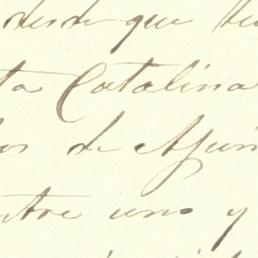 desde que
ta Catalina
os de Ayun
ntre uno y